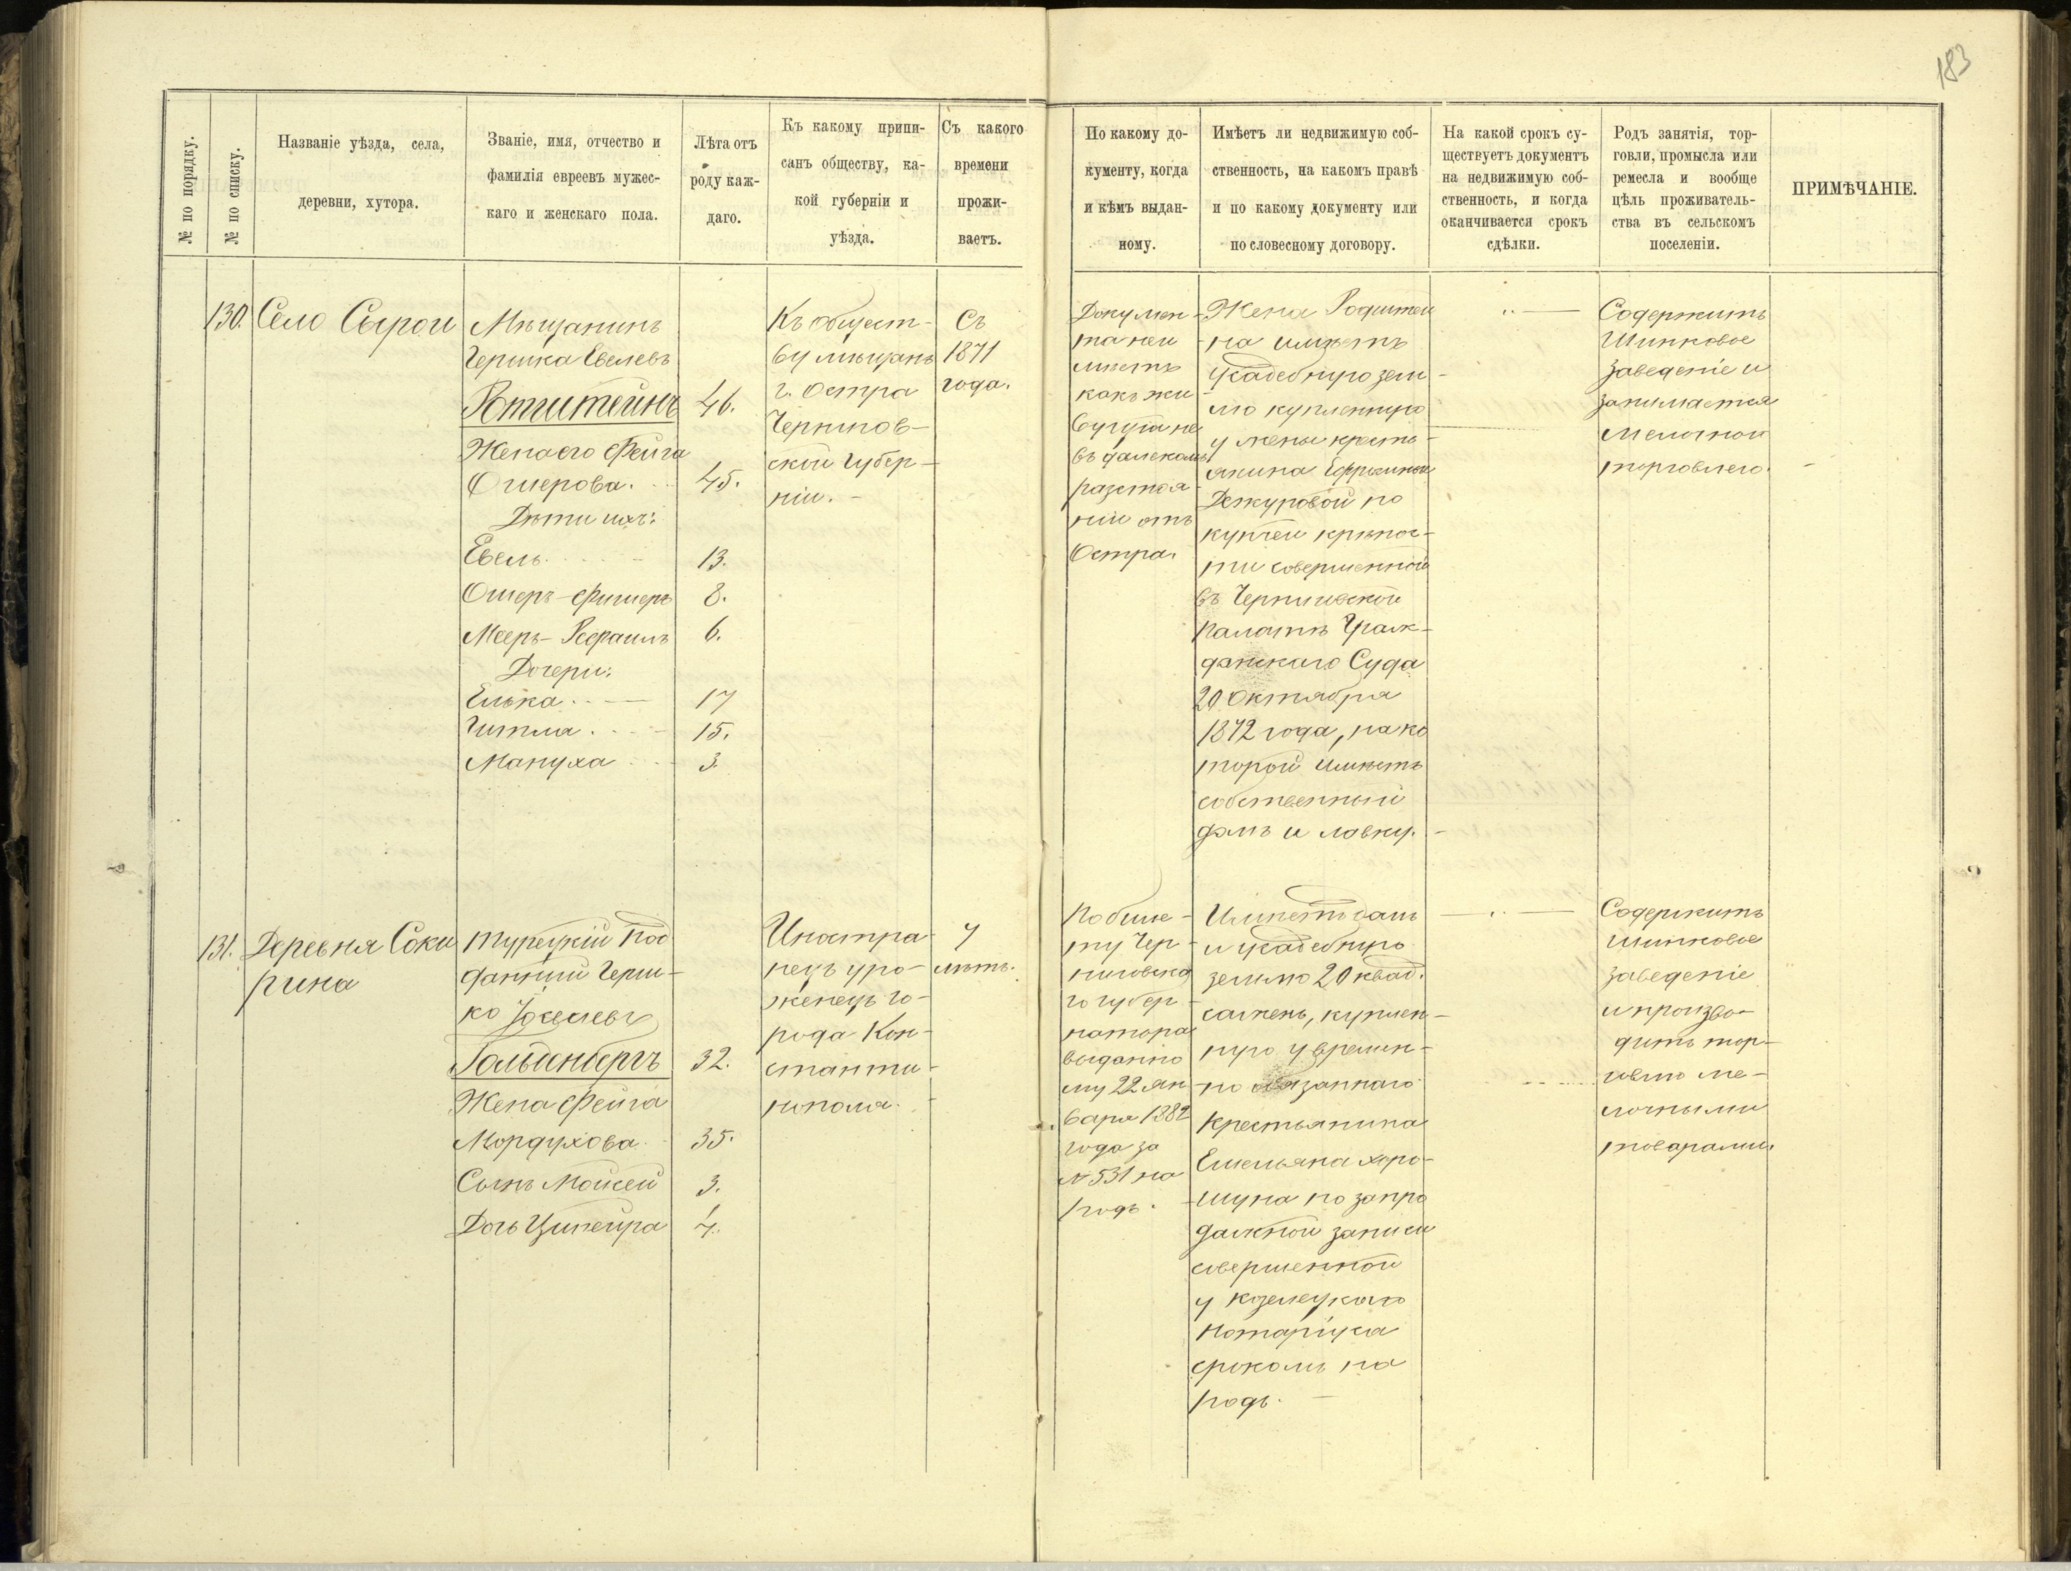 183
№ по порядку.
№ по списку.
Названіе уѣзда, села,
деревни, хутора.
Званіе, имя, отчество и
фамилія евреевъ мужес-
каго и женскаго пола.
Лѣта отъ
роду каж-
даго.
Къ какому припи-
санъ обществу, ка-
кой губерніи и
уѣзда.
Съ какого
времени
прожи-
ваетъ.
По какому до-
кументу, когда
и кѣмъ выдан-
ному.
Имѣетъ ли недвижимую соб-
ственность, на какомъ правѣ
и по какому документу или
по словесному договору.
На какой срокъ су-
ществуетъ документъ
на недвижимую соб-
ственность, и когда
оканчивается срокъ
сдѣлки.
Родъ занятія, тор-
говли, промысла или
ремесла и вообще
цѣль проживатель-
ства въ сельскомъ
поселеніи.
ПРИМѢЧАНІЕ.
130.
Село Сырои
Мѣщанинъ
Гершка Евелевъ
Ротштейнъ 46.
Жена его Фейга
Ошерова. 45.
Дѣти ихъ:
Евель 13.
Ошеръ-Фишеръ 8.
Мееръ-Рефаилъ 6.
Дочери:
Елька 17
Гитла 15.
Мануха 3.
Къ общест-
ву мѣщанъ
г. Остра
Чернигов-
ской Губер-
ніи.
Съ
1871
года.
Докумен-
та не и-
мѣетъ
какъ жи-
вущій не
въ далекомъ
разстоя-
ніи отъ
Остра.
Жена Родштей-
на имѣетъ
усадебную зем-
лю купленную
у жены кресть-
янина
Дежуровой по
купчей крѣпос-
ти совершенной
въ Черниговской
Палатѣ Граж-
данскаго Суда
20 Октября
1872 года, на ко
торой имѣетъ
собственный
домъ и лавку.
Содержитъ
Шинковое
Заведеніе и
занимается
мелочной
торговлею.
131.
Деревня Соки
рина
Турецкій под
данный Герш-
ко Іоселевъ
Гольденбергъ 32.
Жена Фейга
Мордухова 35.
Сынъ Мойсей 3.
Дочь Ципейра
Иностра-
нецъ уро-
женецъ го-
рода Кон-
станти-
нополя.
7
лѣтъ.
По биле-
ту Чер-
ниговска
го губер-
натора
выданно
му 22 Ян
варя 1882
года за
№ 531 на
годъ.
Имѣетъ домъ
и усадебную
землю 20 квад.
сажень, куплен-
ную у времен-
но обязаннаго
крестьянина
Емельяна Хоро-
шуна по запро
дажной записи
совершенной
у Козелецкаго
Нотаріуса
срокомъ на
годъ.
Содержитъ
Шинковое
заведеніе
и произво-
дитъ тор-
говлю ме-
лочными
товарами.